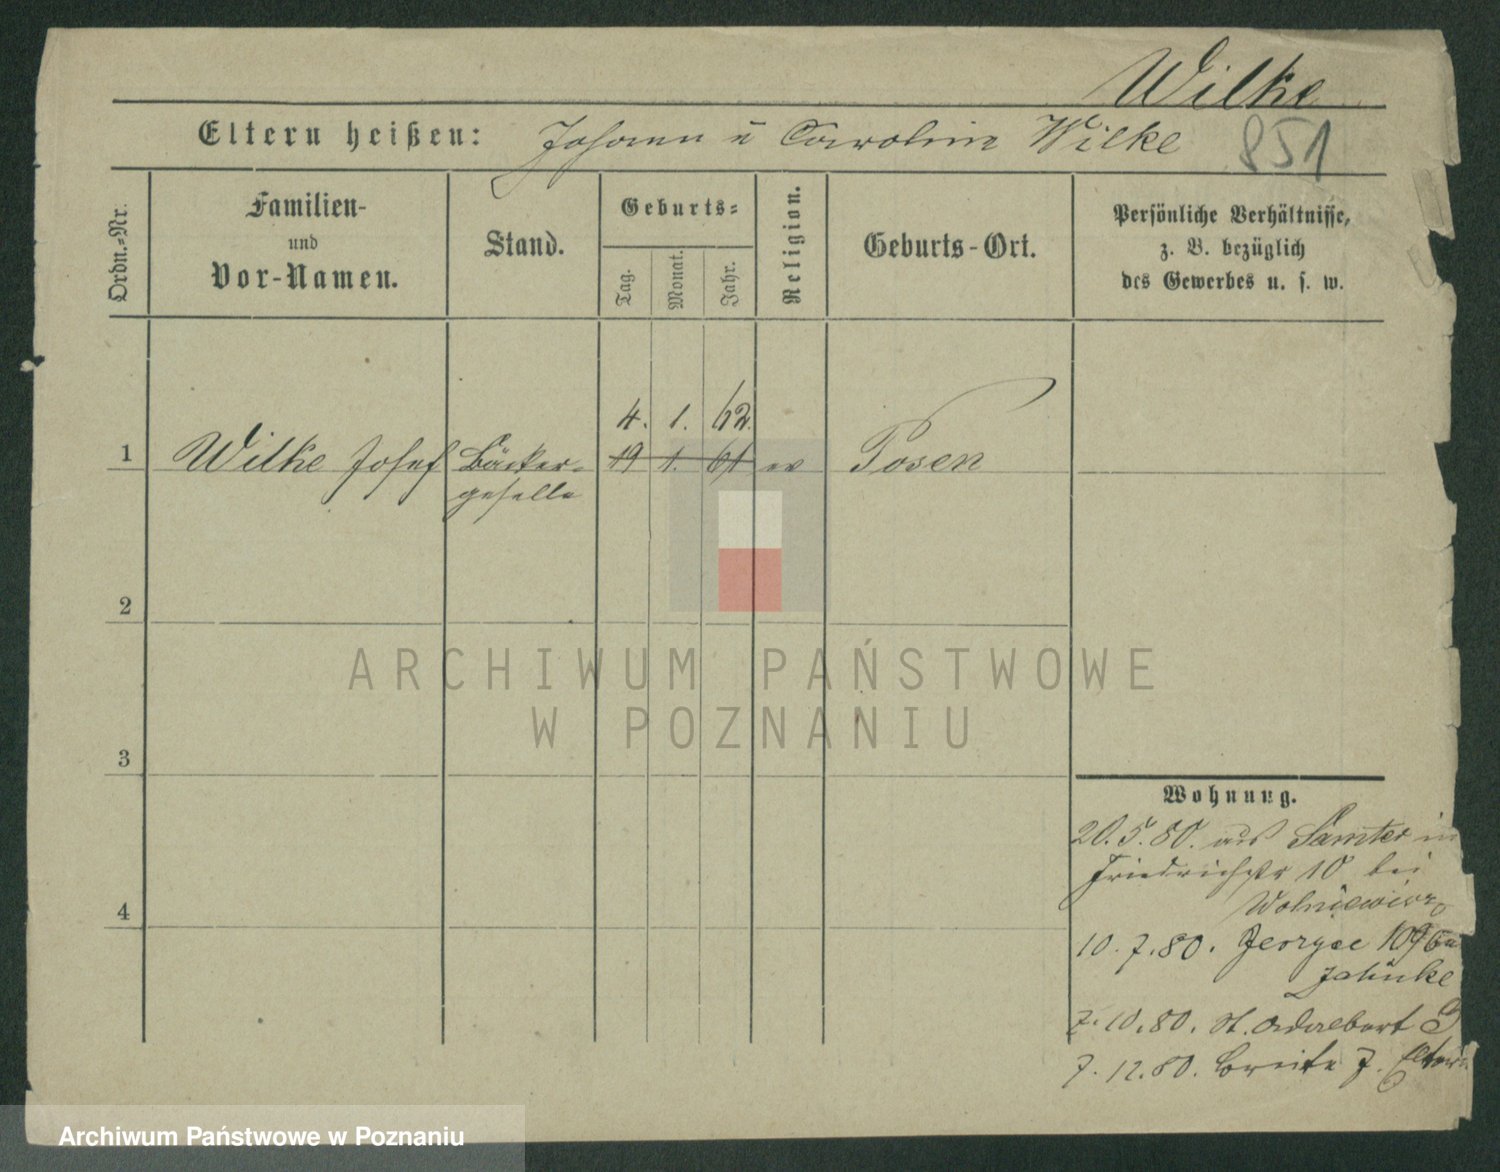 Wilke
Eltern heißen: Johann u Caroline Wilke
851
Ordn.-Nr.
Familien-
und
Vor-Namen.
Stand.
Geburts-
Tag.
Monat.
Jahr.
Religion.
Geburts-Ort.
Persönliche Verhältnisse,
z. B. bezüglich
des Gewerbes u. s. w.
4. 1. 62.
1 Wilke Josef Bäcker- 19 1. 61 ev Posen
geselle
2
3
4
ARCHIWUM PAŃSTWOWE
W POZNANIU
Wohnung.
20.5.80. aus Samter in
Friedrichstr 10 bei
Wolniewicz
10.7.80. 
Jahnke
7.10.80. St. Adalbert 3
7.12.80. Breite 7.
Archiwum Państwowe w Poznaniu